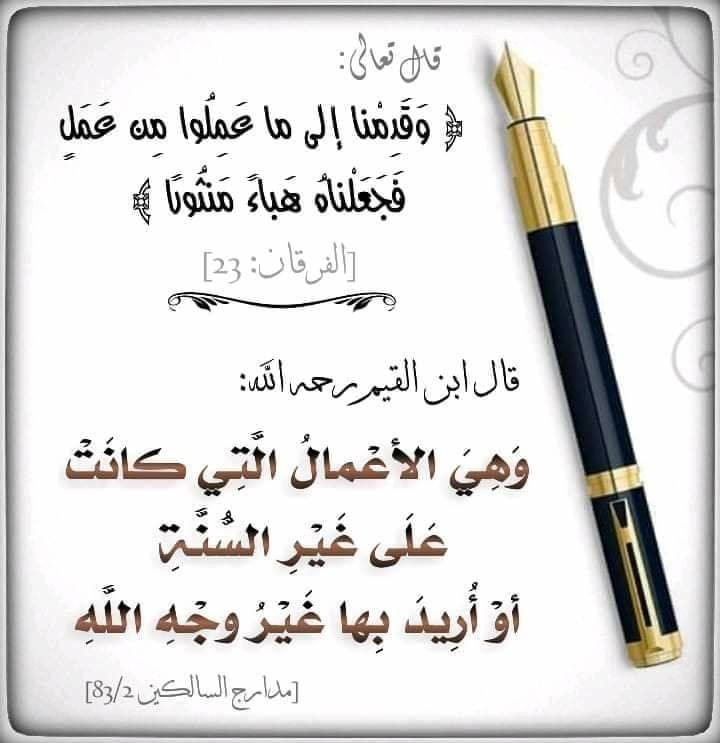 قال تعالى:
﴿ وَقَدِمْنا إلى ما عَمِلُوا مِن عَمَلٍ
فَجَعَلْناهُ هَباءً مَنثُورًا ﴾
[الفرقان: 23]
قال ابن القيم رحمه الله:
وَهِيَ الأعْمالُ الَّتِي كانَتْ
عَلى غَيْرِ السُّنَّةِ
أوْ أُرِيدَ بِها غَيْرُ وجْهِ اللَّهِ
[مدارج السالكين 83/2]